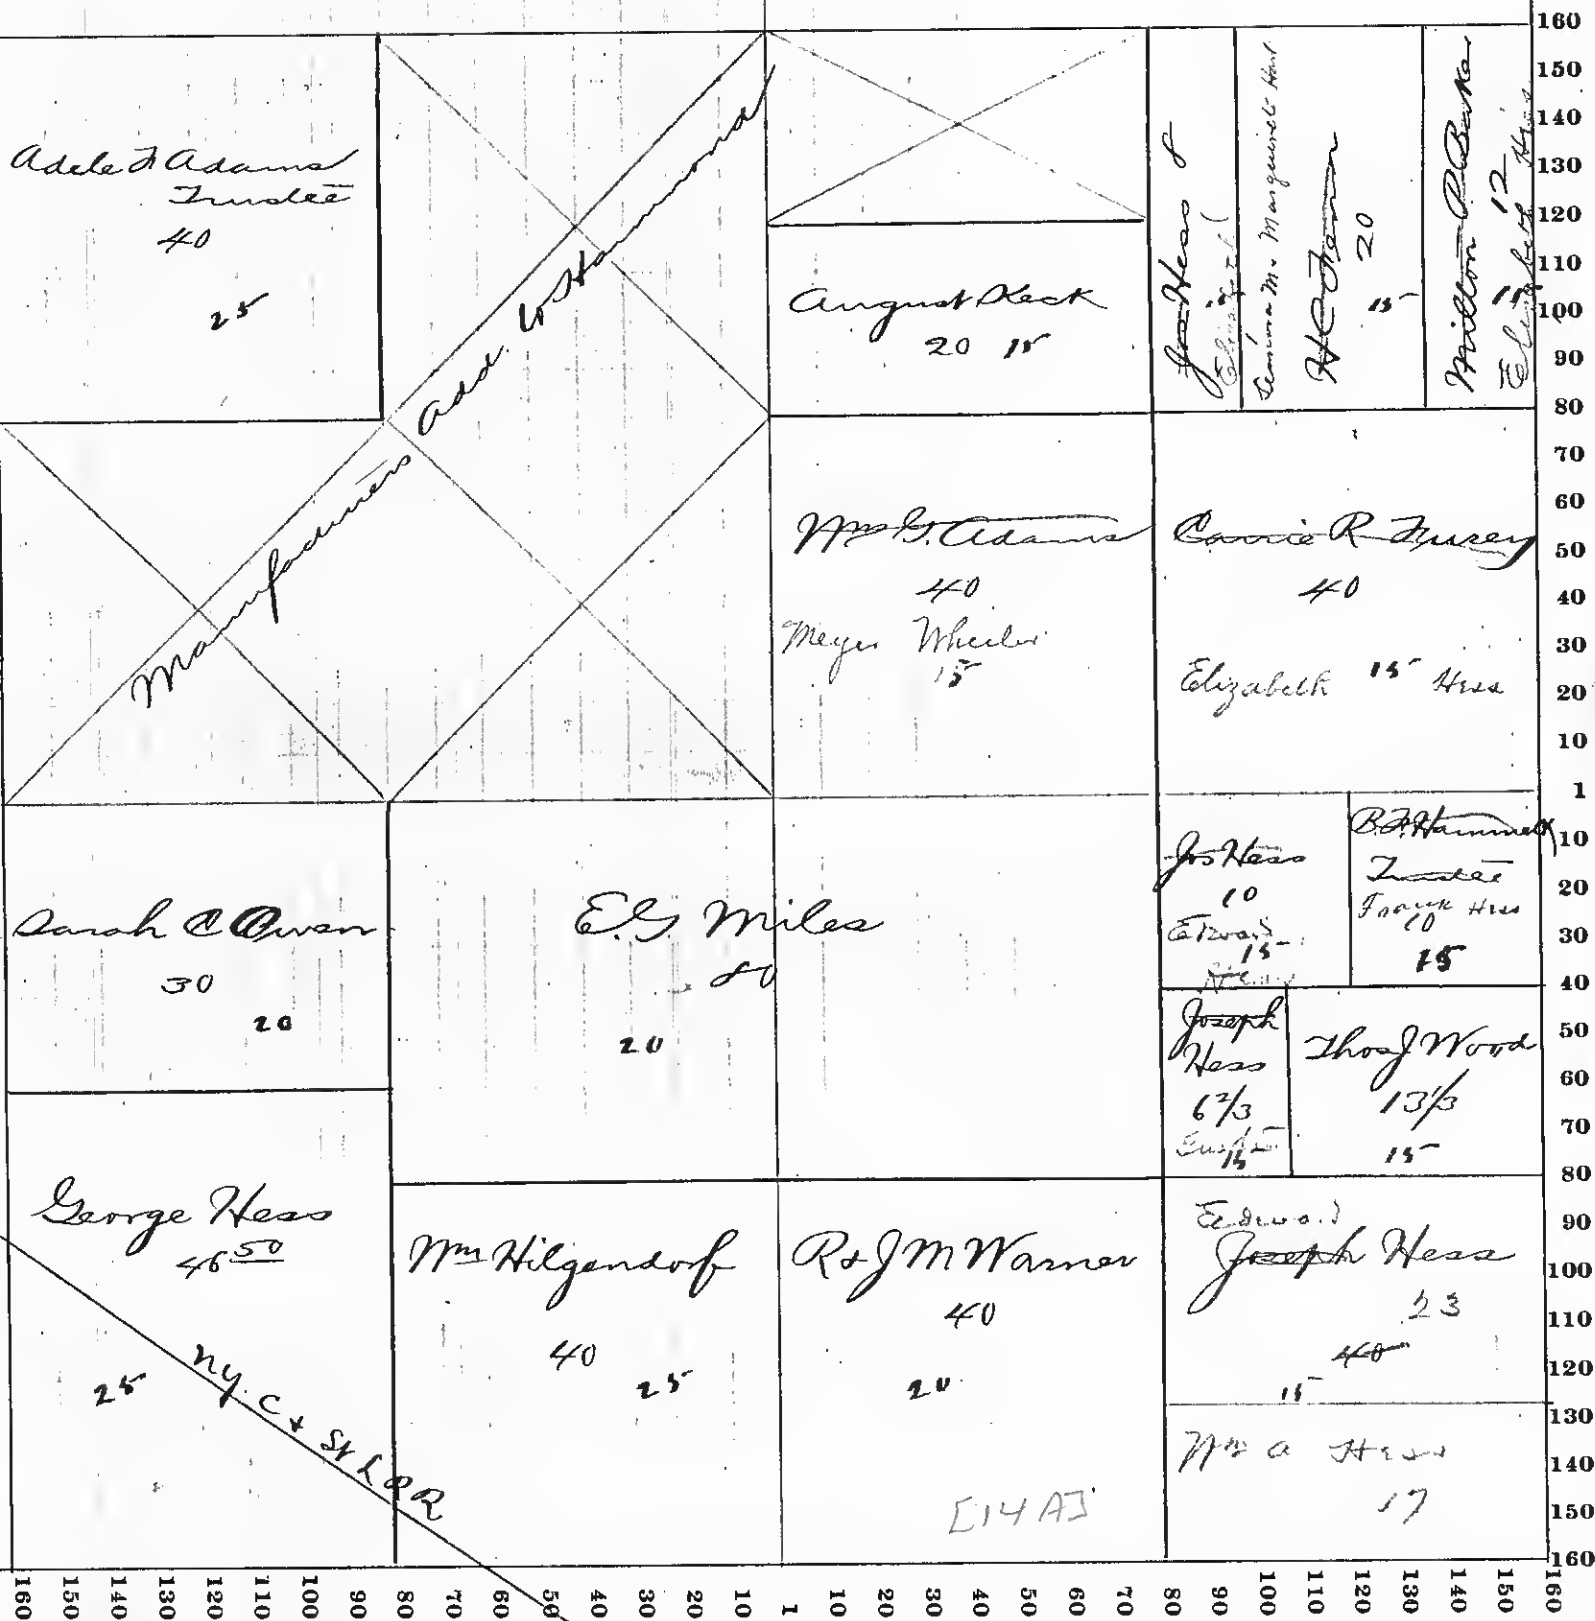 Adele F Adams
Trustee
40
25
Manufacturers Add. to Hammond
August Keck
20 15
Jos Hess 8
Elizabeth
20
15
Milton P. Barker
12
Elizabeth 15 Hess
Wm G. Adams
40
Meyer Wheeler
15
Carrie R Fursey
40
Elizabeth 15 Hess
Sarah C Owen
30
20
E.G. Miles
80
20
Jos Hess
10
15
B.F. Hammett
Trustee
Frank Hess
10
15
Joseph
Hess
6 2/3
15
Thos J Wood
13 1/3
15
George Hess
46 50
25
N.Y. C & St L R R
Wm Hilgendorf
40
25
R & J M Warner
40
20
[14 A]
Edward
Joseph Hess
23
40
15
Wm A Hess
17
160
150
140
130
120
110
100
90
80
70
60
50
40
30
20
10
1
10
20
30
40
50
60
70
80
90
100
110
120
130
140
150
160
160 150 140 130 120 110 100 90 80 70 60 50 40 30 20 10 1 10 20 30 40 50 60 70 80 90 100 110 120 130 140 150 160